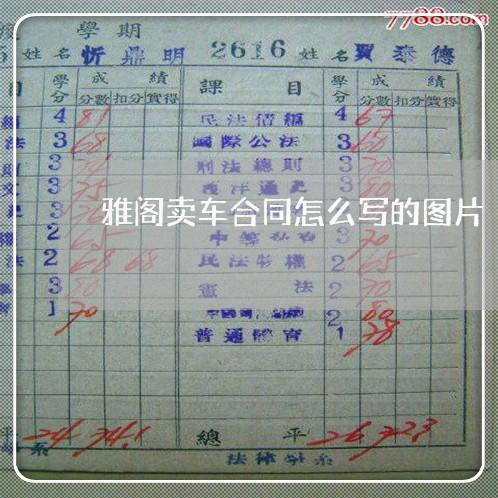 7788.com
學期
5 姓名 忻鼎明 2616 姓名 賈泰德
目 學分 成績 課目 學分 成績
分數 扣分 實得 分數 扣分 實得
4 81 民法債編 4 67
法 3 68 國際公法 3 60
3 刑法總則 3 70
3 75 西洋通史 3 80
雅阁卖车合同怎么写的图片
2 65 3 70
法 2 68 68 民法物權 2 65
3 80 憲法 2 70
1 70 2 80
普通體育 1 78
平 24 74.1 總平 26 72.3
系 法律學系